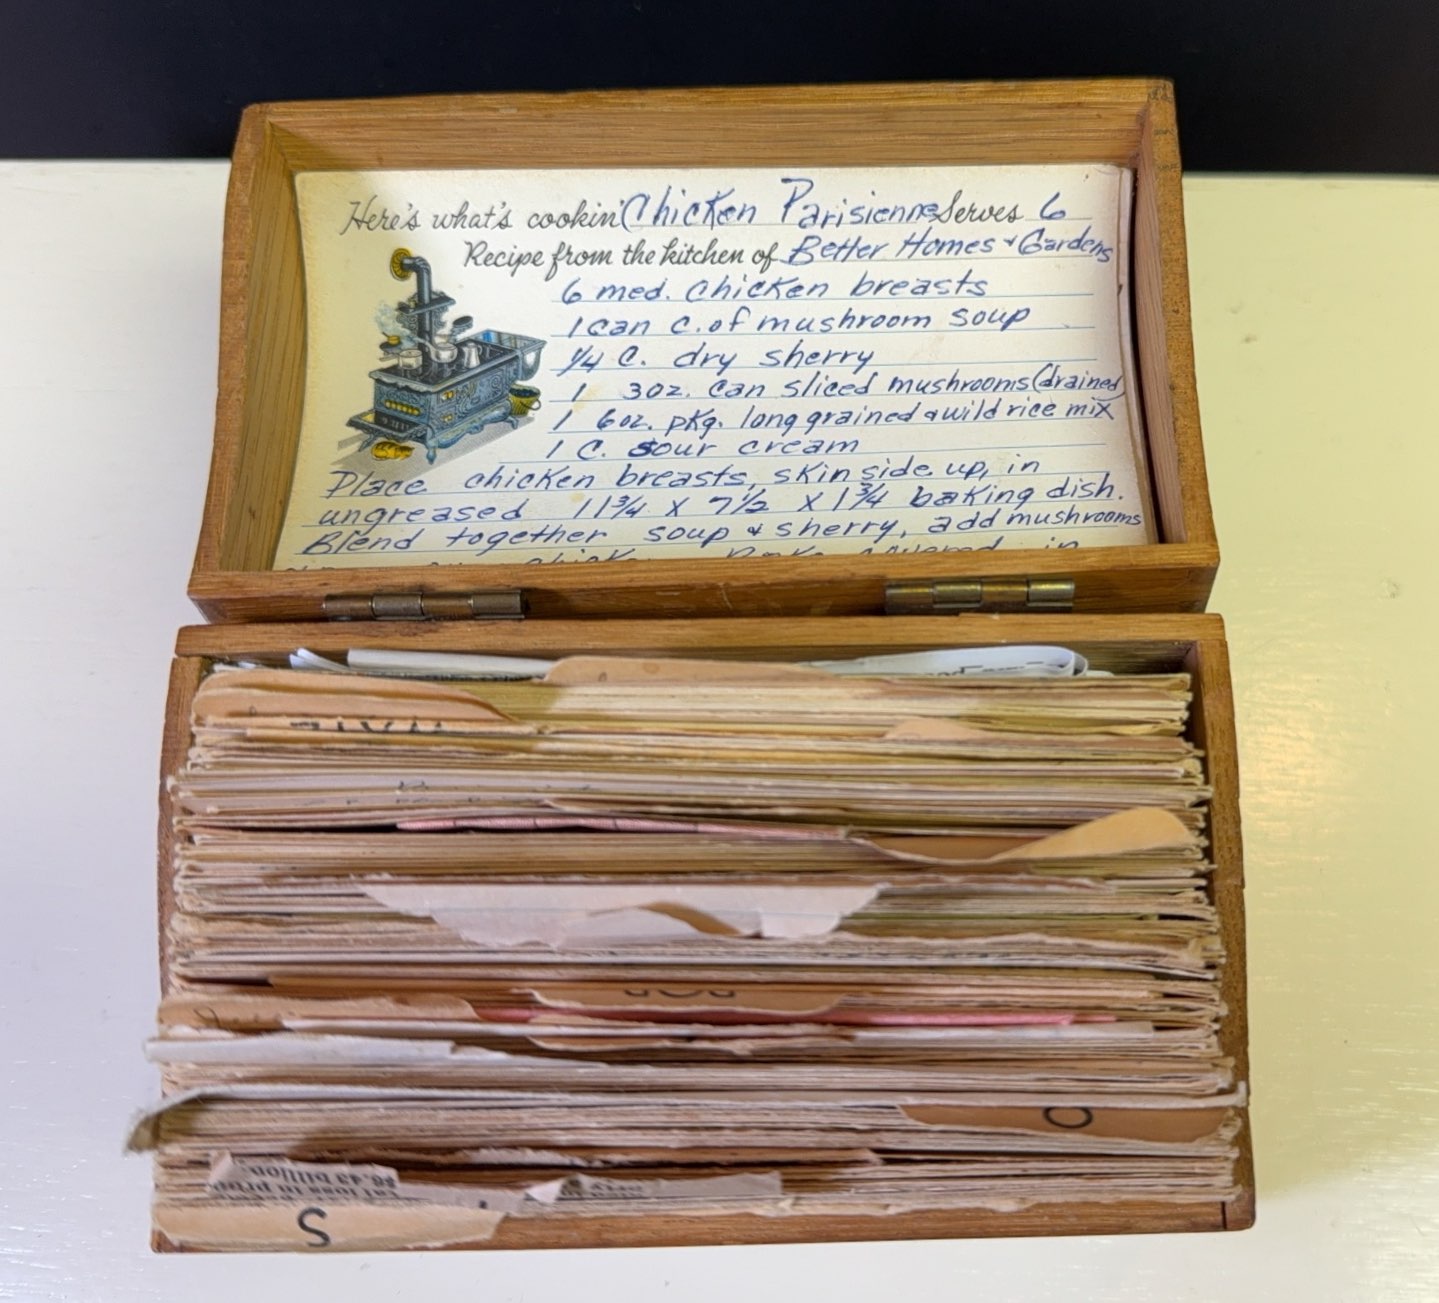 Here's what's cookin' Chicken Parisienne Serves 6
Recipe from the kitchen of Better Homes & Gardens
6 med. chicken breasts
1 can c. of mushroom soup
1/4 C. dry sherry
1 3oz. can sliced mushrooms (drained)
1 6oz. pkg. long grained & wild rice mix
1 C. sour cream
Place chicken breasts, skin side up, in
ungreased 11 3/4 x 7 1/2 x 1 3/4 baking dish.
Blend together soup & sherry, add mushrooms
chicken covered in
O
$6.43 billion
loss in
S